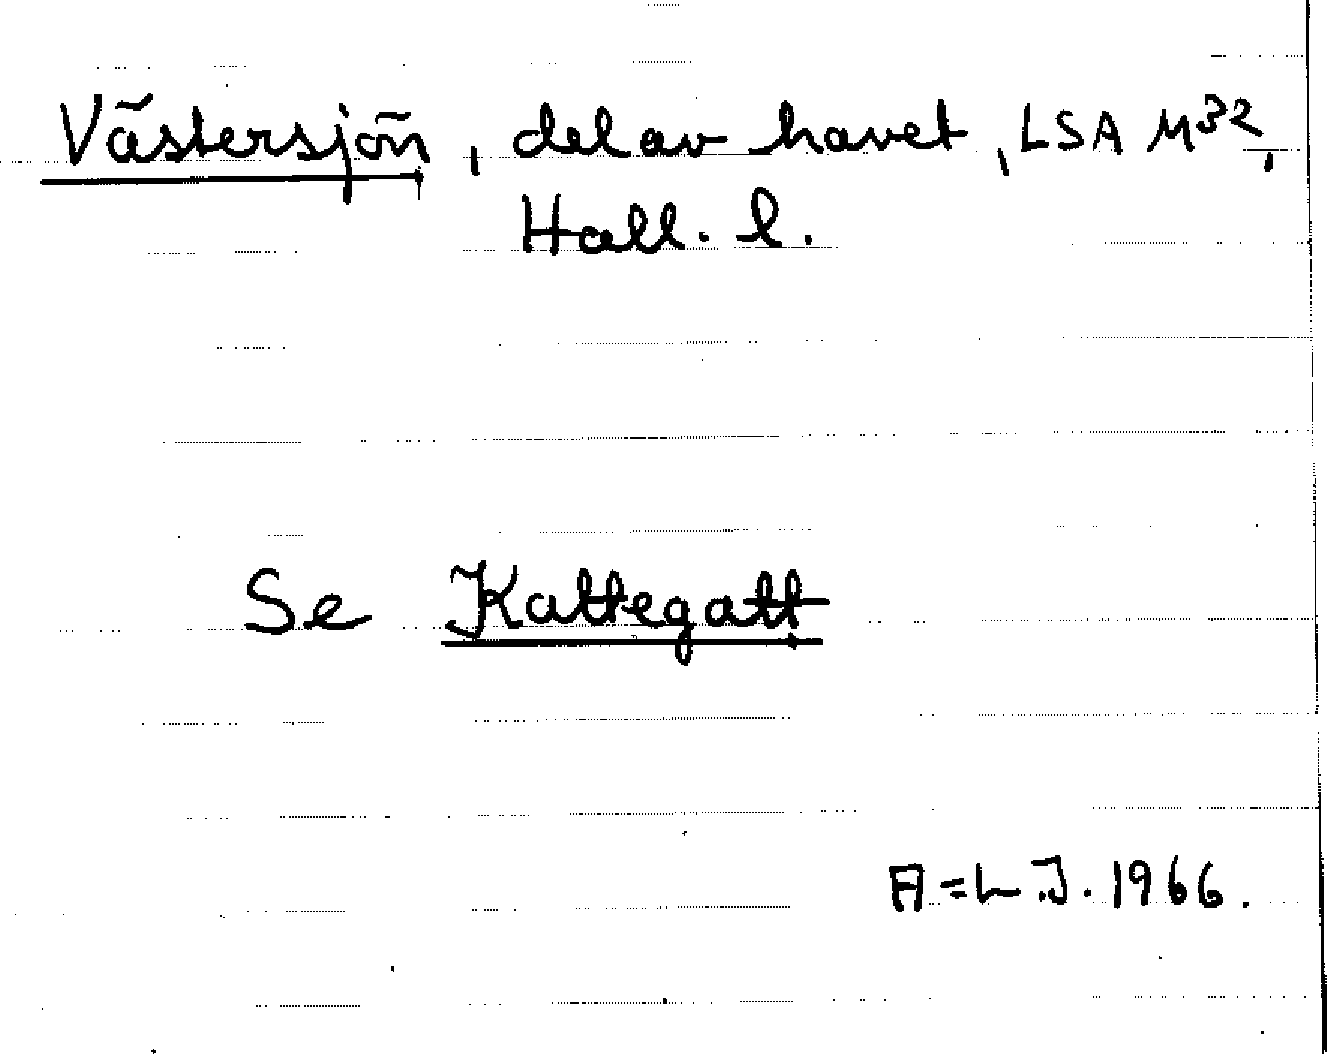 Västersjön, del av havet, LSA M32,
Hall. l.
Se Kattegatt
A=L J. 1966.